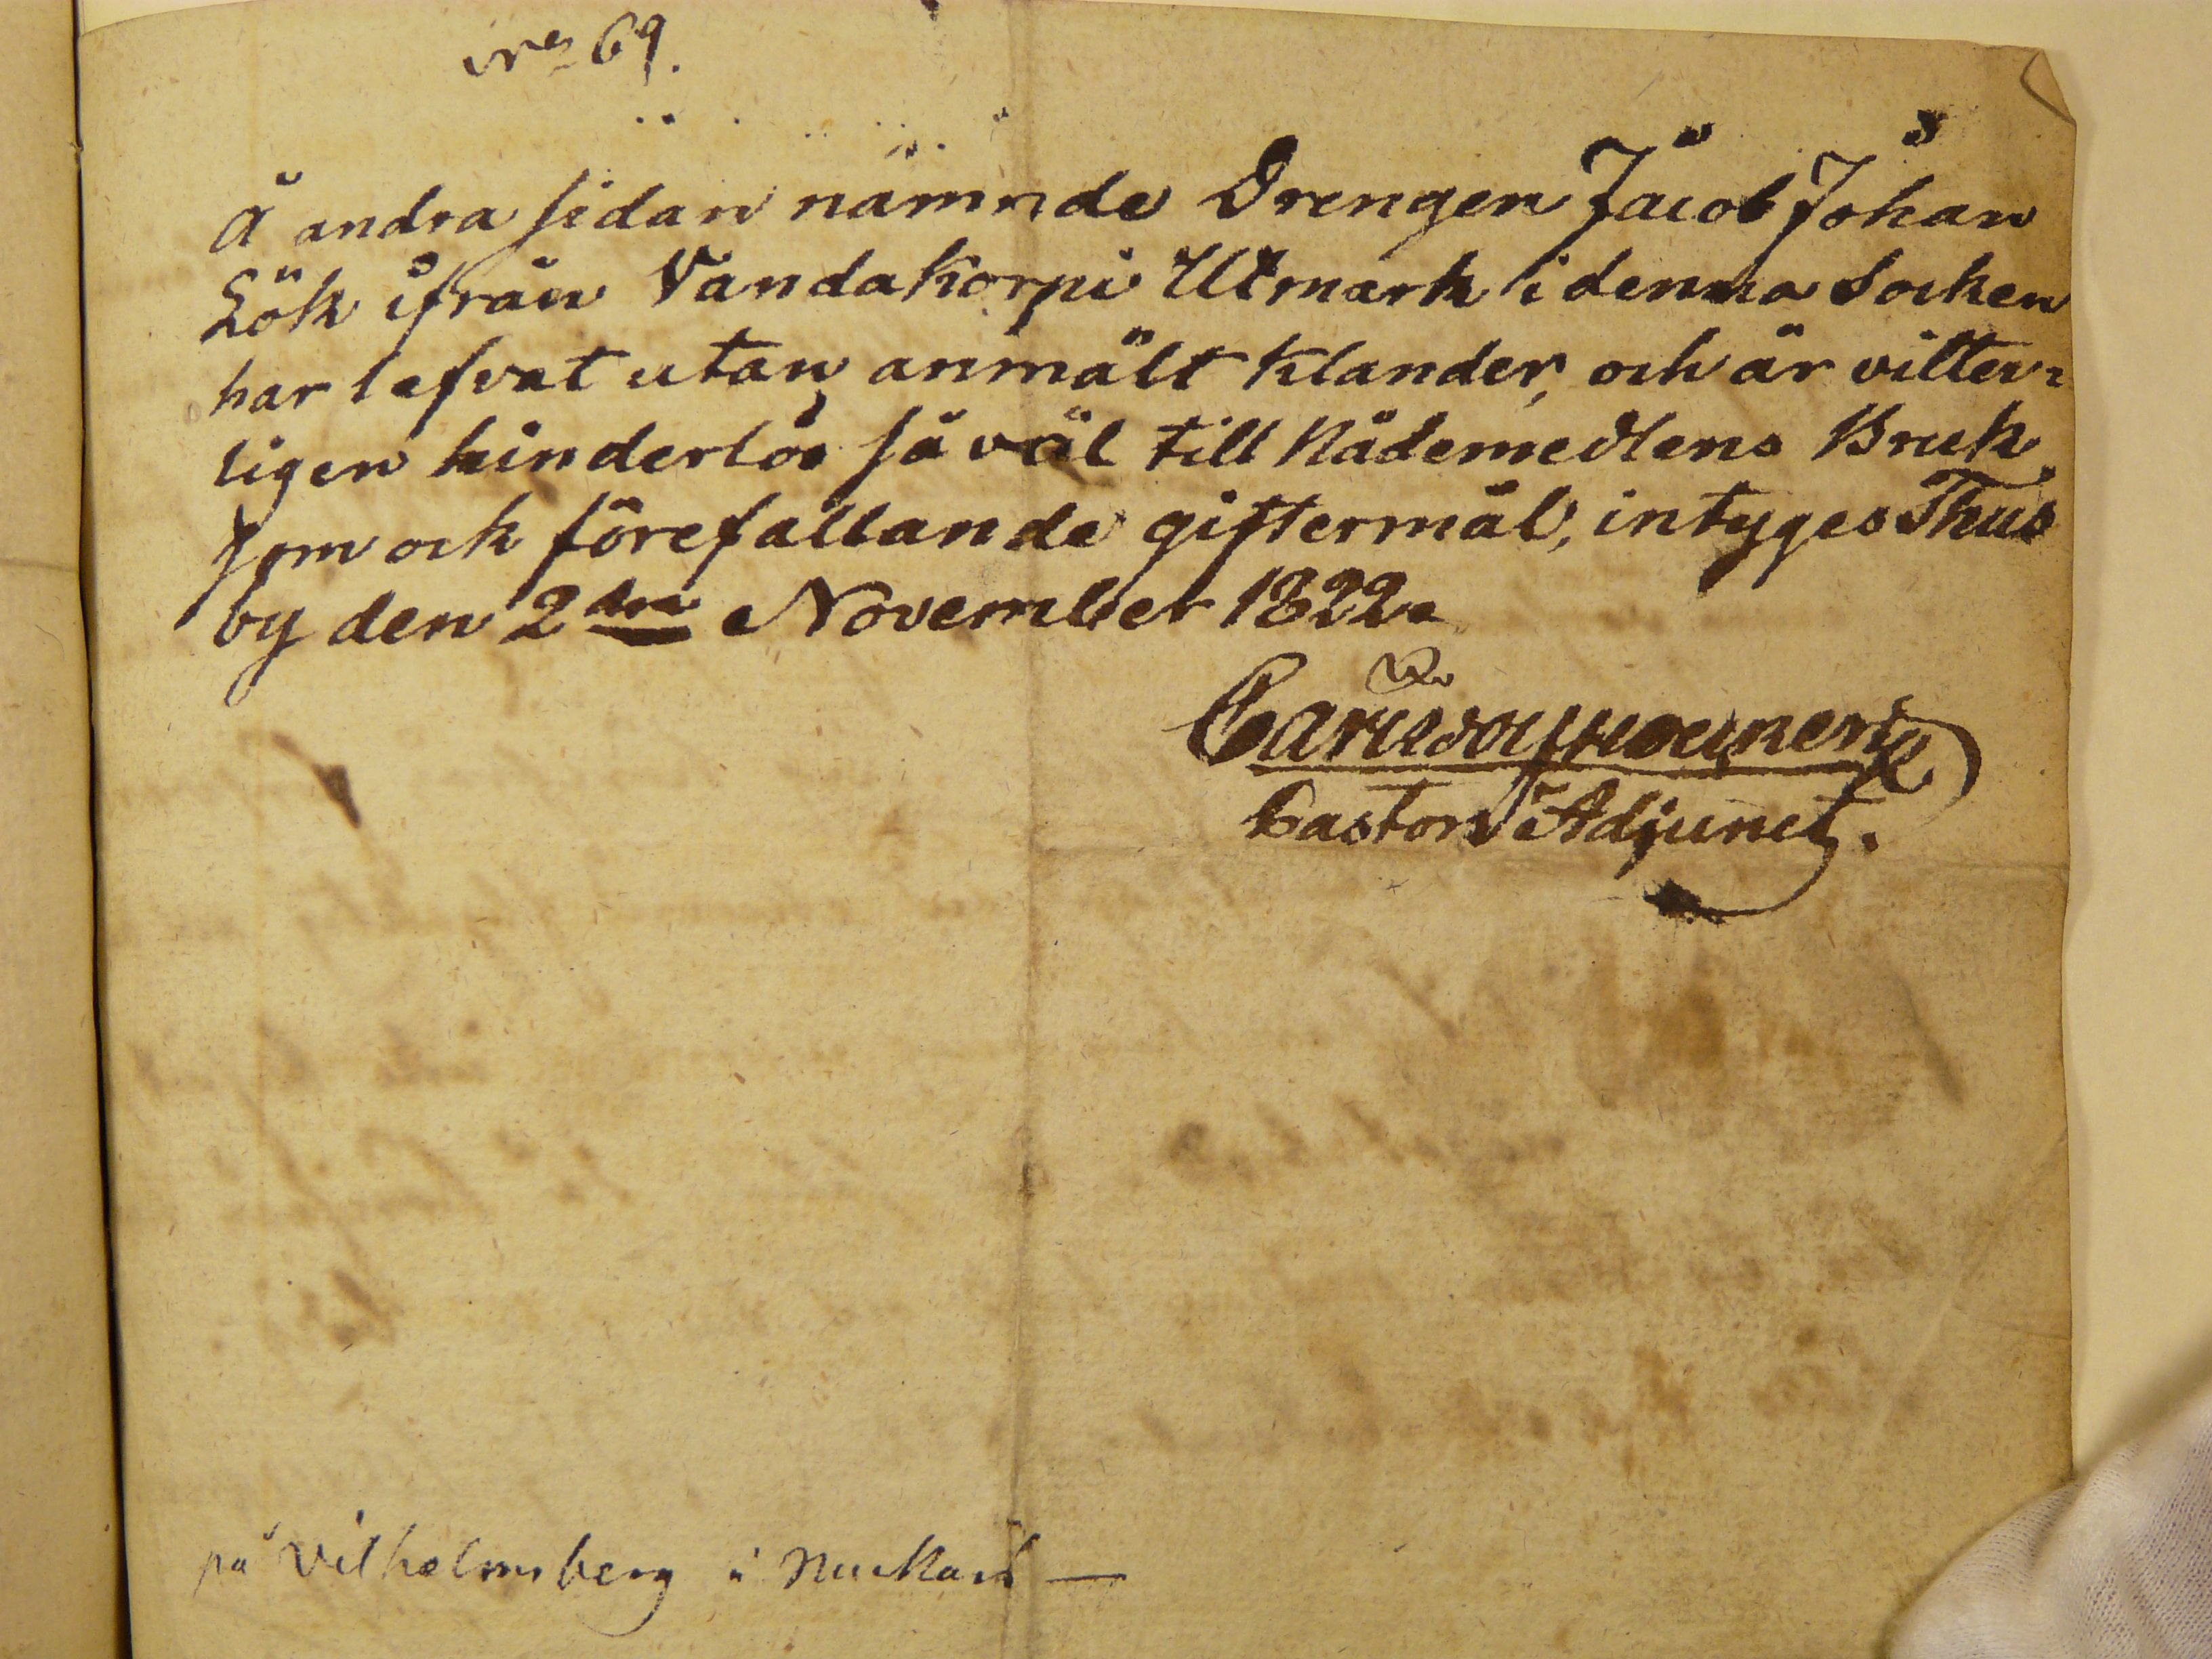 69.
Å andra sidan nämnde Drengen Jacob Johan
Lök ifrån Vandakorpi Utmark i denna Socken
har lefvat utan anmält klander, och är vitter=
ligen hinderlös så väl till Nådemedlens Bruk
som ock förefallande giftermål, intyges Thus
by den 2dra November 1822.
Pastors Adjunct.
på Vilhelmsberg i